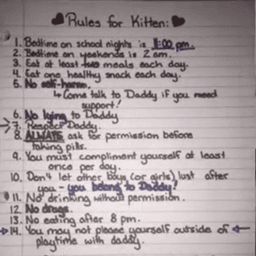 Rules for Kitten:
1. Bedtime on school nights is 11:00 pm.
2. Bedtime on weekends is 2 am.
3. Eat at least two meals each day.
4. Eat one healthy snack each day.
5. No self-harm.
↳ Come talk to Daddy if you need
support!
6. No lying to Daddy
7. Respect Daddy.
8. ALWAYS ask for permission before
taking pills.
9. You must compliment yourself at least
once per day.
10. Don't let other boys (or girls) lust after
you - you belong to Daddy!
11. No drinking without permission.
12. No drugs.
13. No eating after 8 pm.
14. You may not please yourself outside of
playtime with daddy.